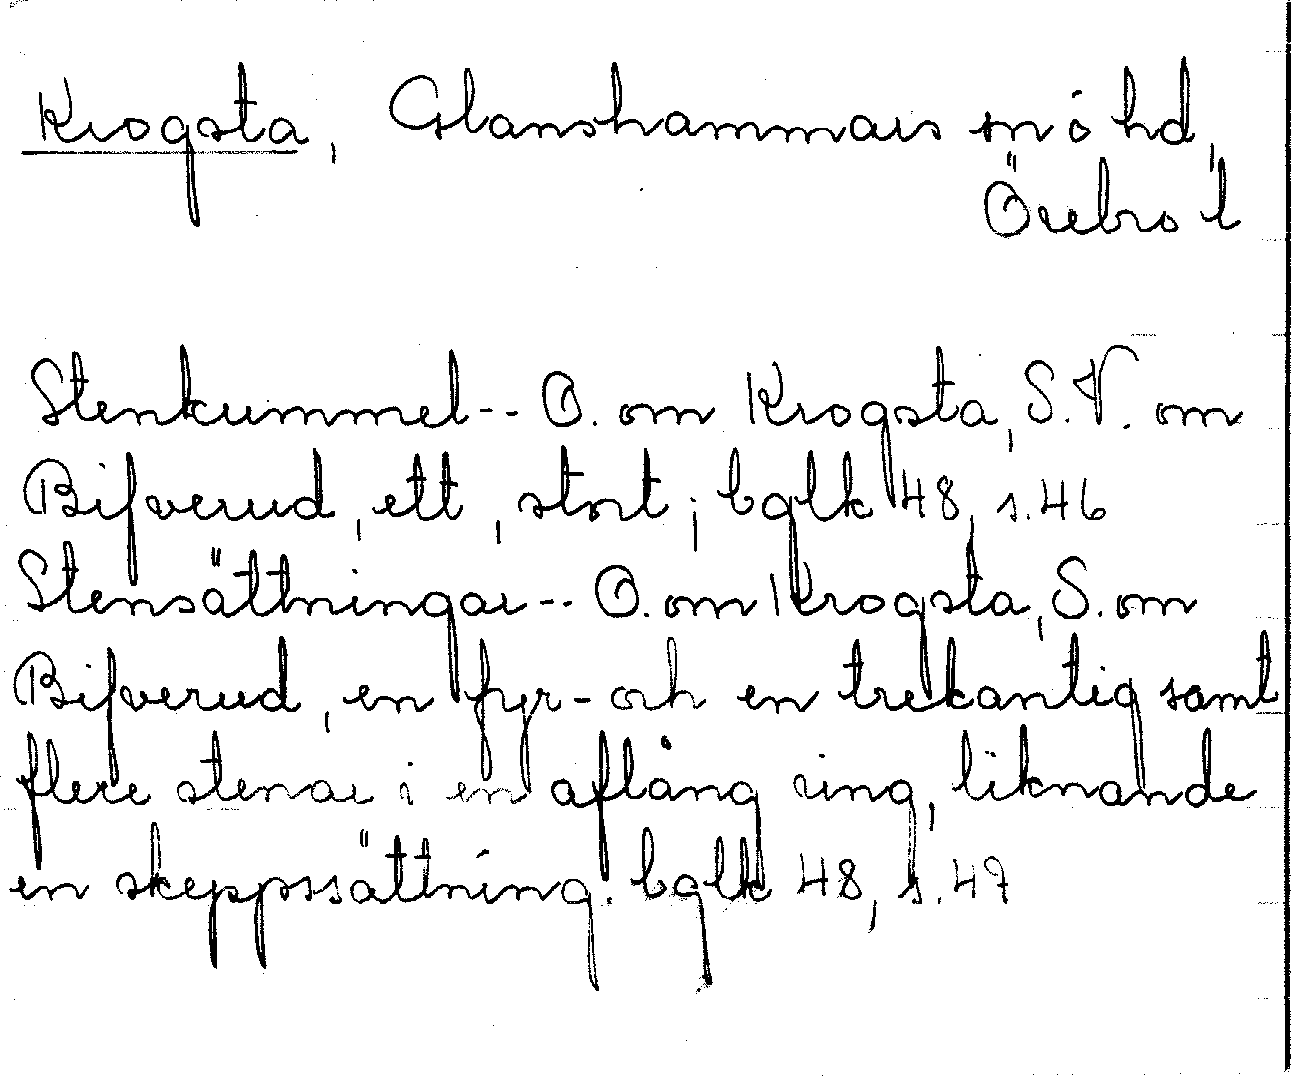 Krogsta, Glanshammars sn ó hd,
Örebro l
Stenkummel-- O. om Krogsta, S.V. om
Bifverud, ett, stort; bglk 48, s.46
Stensättningar-- O. om Krogsta, S. om
Bifverud, en fyr- och en trekantig samt
flere stenar i en aflång ring, liknande
en skeppssättning. bglk 48, s.47